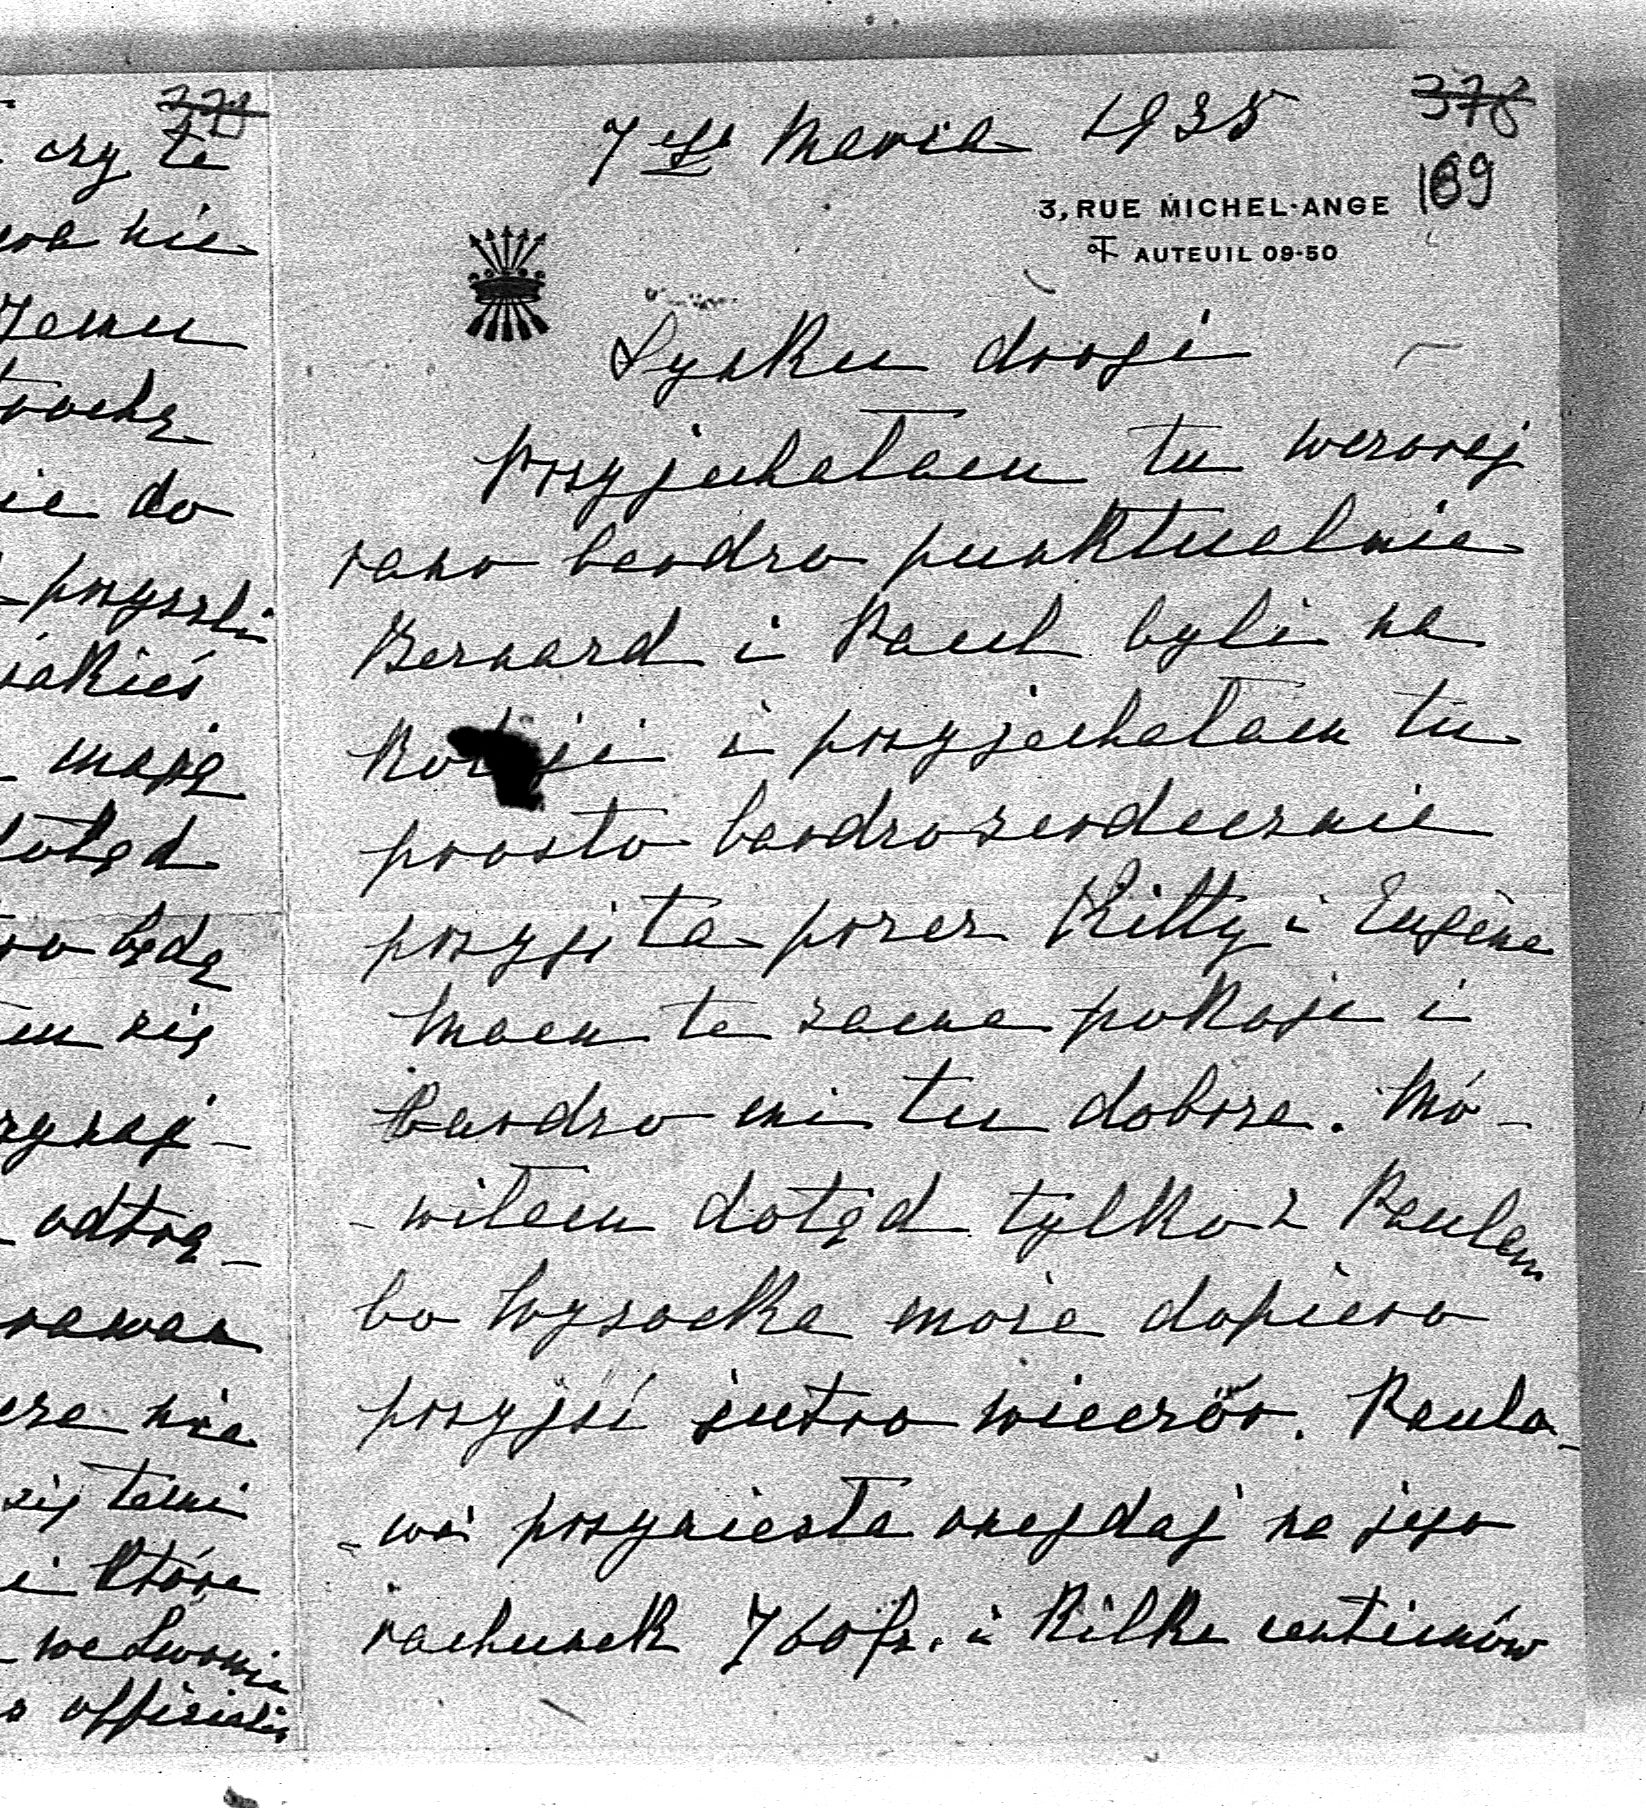 378
czy te
nie
temu
trochę
nie do
przyszli
jakieś
mają
dotąd
będę
się
odtrą-
nie
się temi
i które
we Lwowie
7go Marca 1935
378
169
3, RUE MICHEL-ANGE
AUTEUIL 09-50
Synku drogi
przyjechałam tu wczoraj
rano bardzo punktualnie
Bernard i Paul byli na
koleji i przyjechałam tu
prosto bardzo serdecznie
przyjęta przez Kitty i Eugène
Mam te same pokoje i
bardzo mi tu dobrze. Mó-
-wiłam dotąd tylko z Paulem
bo Wysocka może dopiero
przyjść jutro wieczór. Paulo-
-wi przyniosła onegdaj na jego
rachunek 760 fr. i kilka centimów